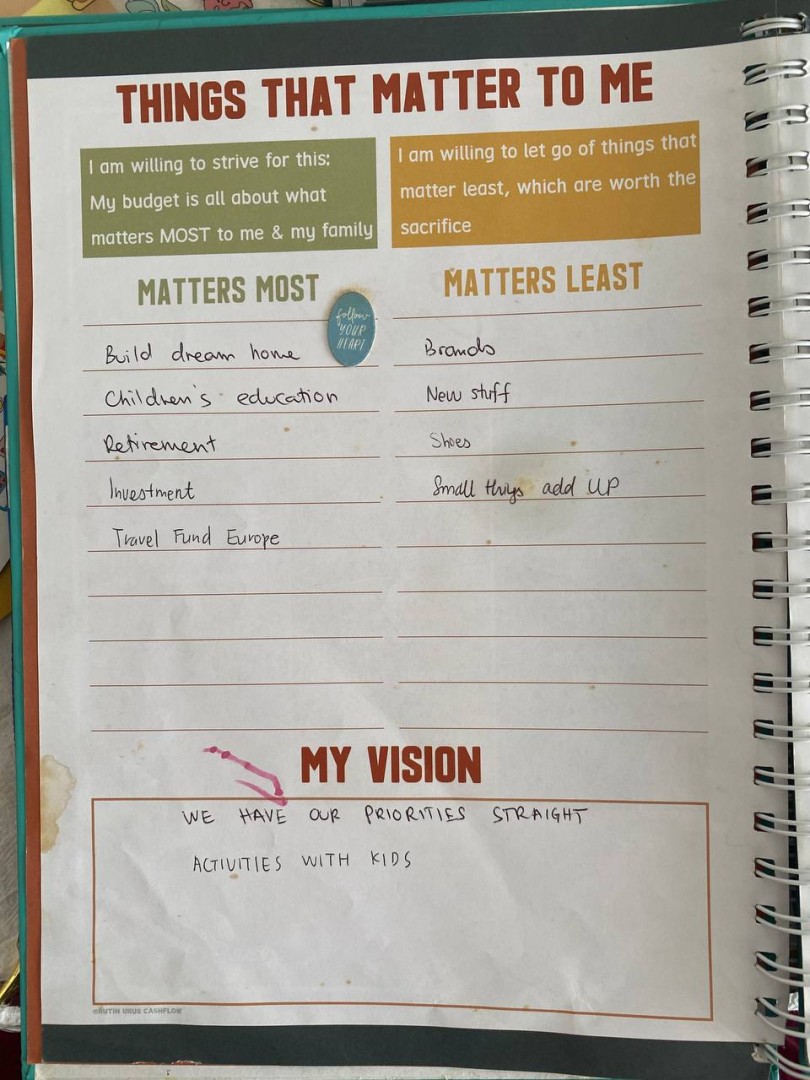 THINGS THAT MATTER TO ME
I am willing to strive for this:
My budget is all about what
matters MOST to me & my family
I am willing to let go of things that
matter least, which are worth the
sacrifice
MATTERS MOST
follow
YOUR
HEART
Build dream home
Children's education
Retirement
Investment
Travel Fund Europe
MATTERS LEAST
Brands
New stuff
Shoes
Small things add UP
MY VISION
WE HAVE OUR PRIORITIES STRAIGHT
ACTIVITIES WITH KIDS
©RUTIN URUS CASHFLOW